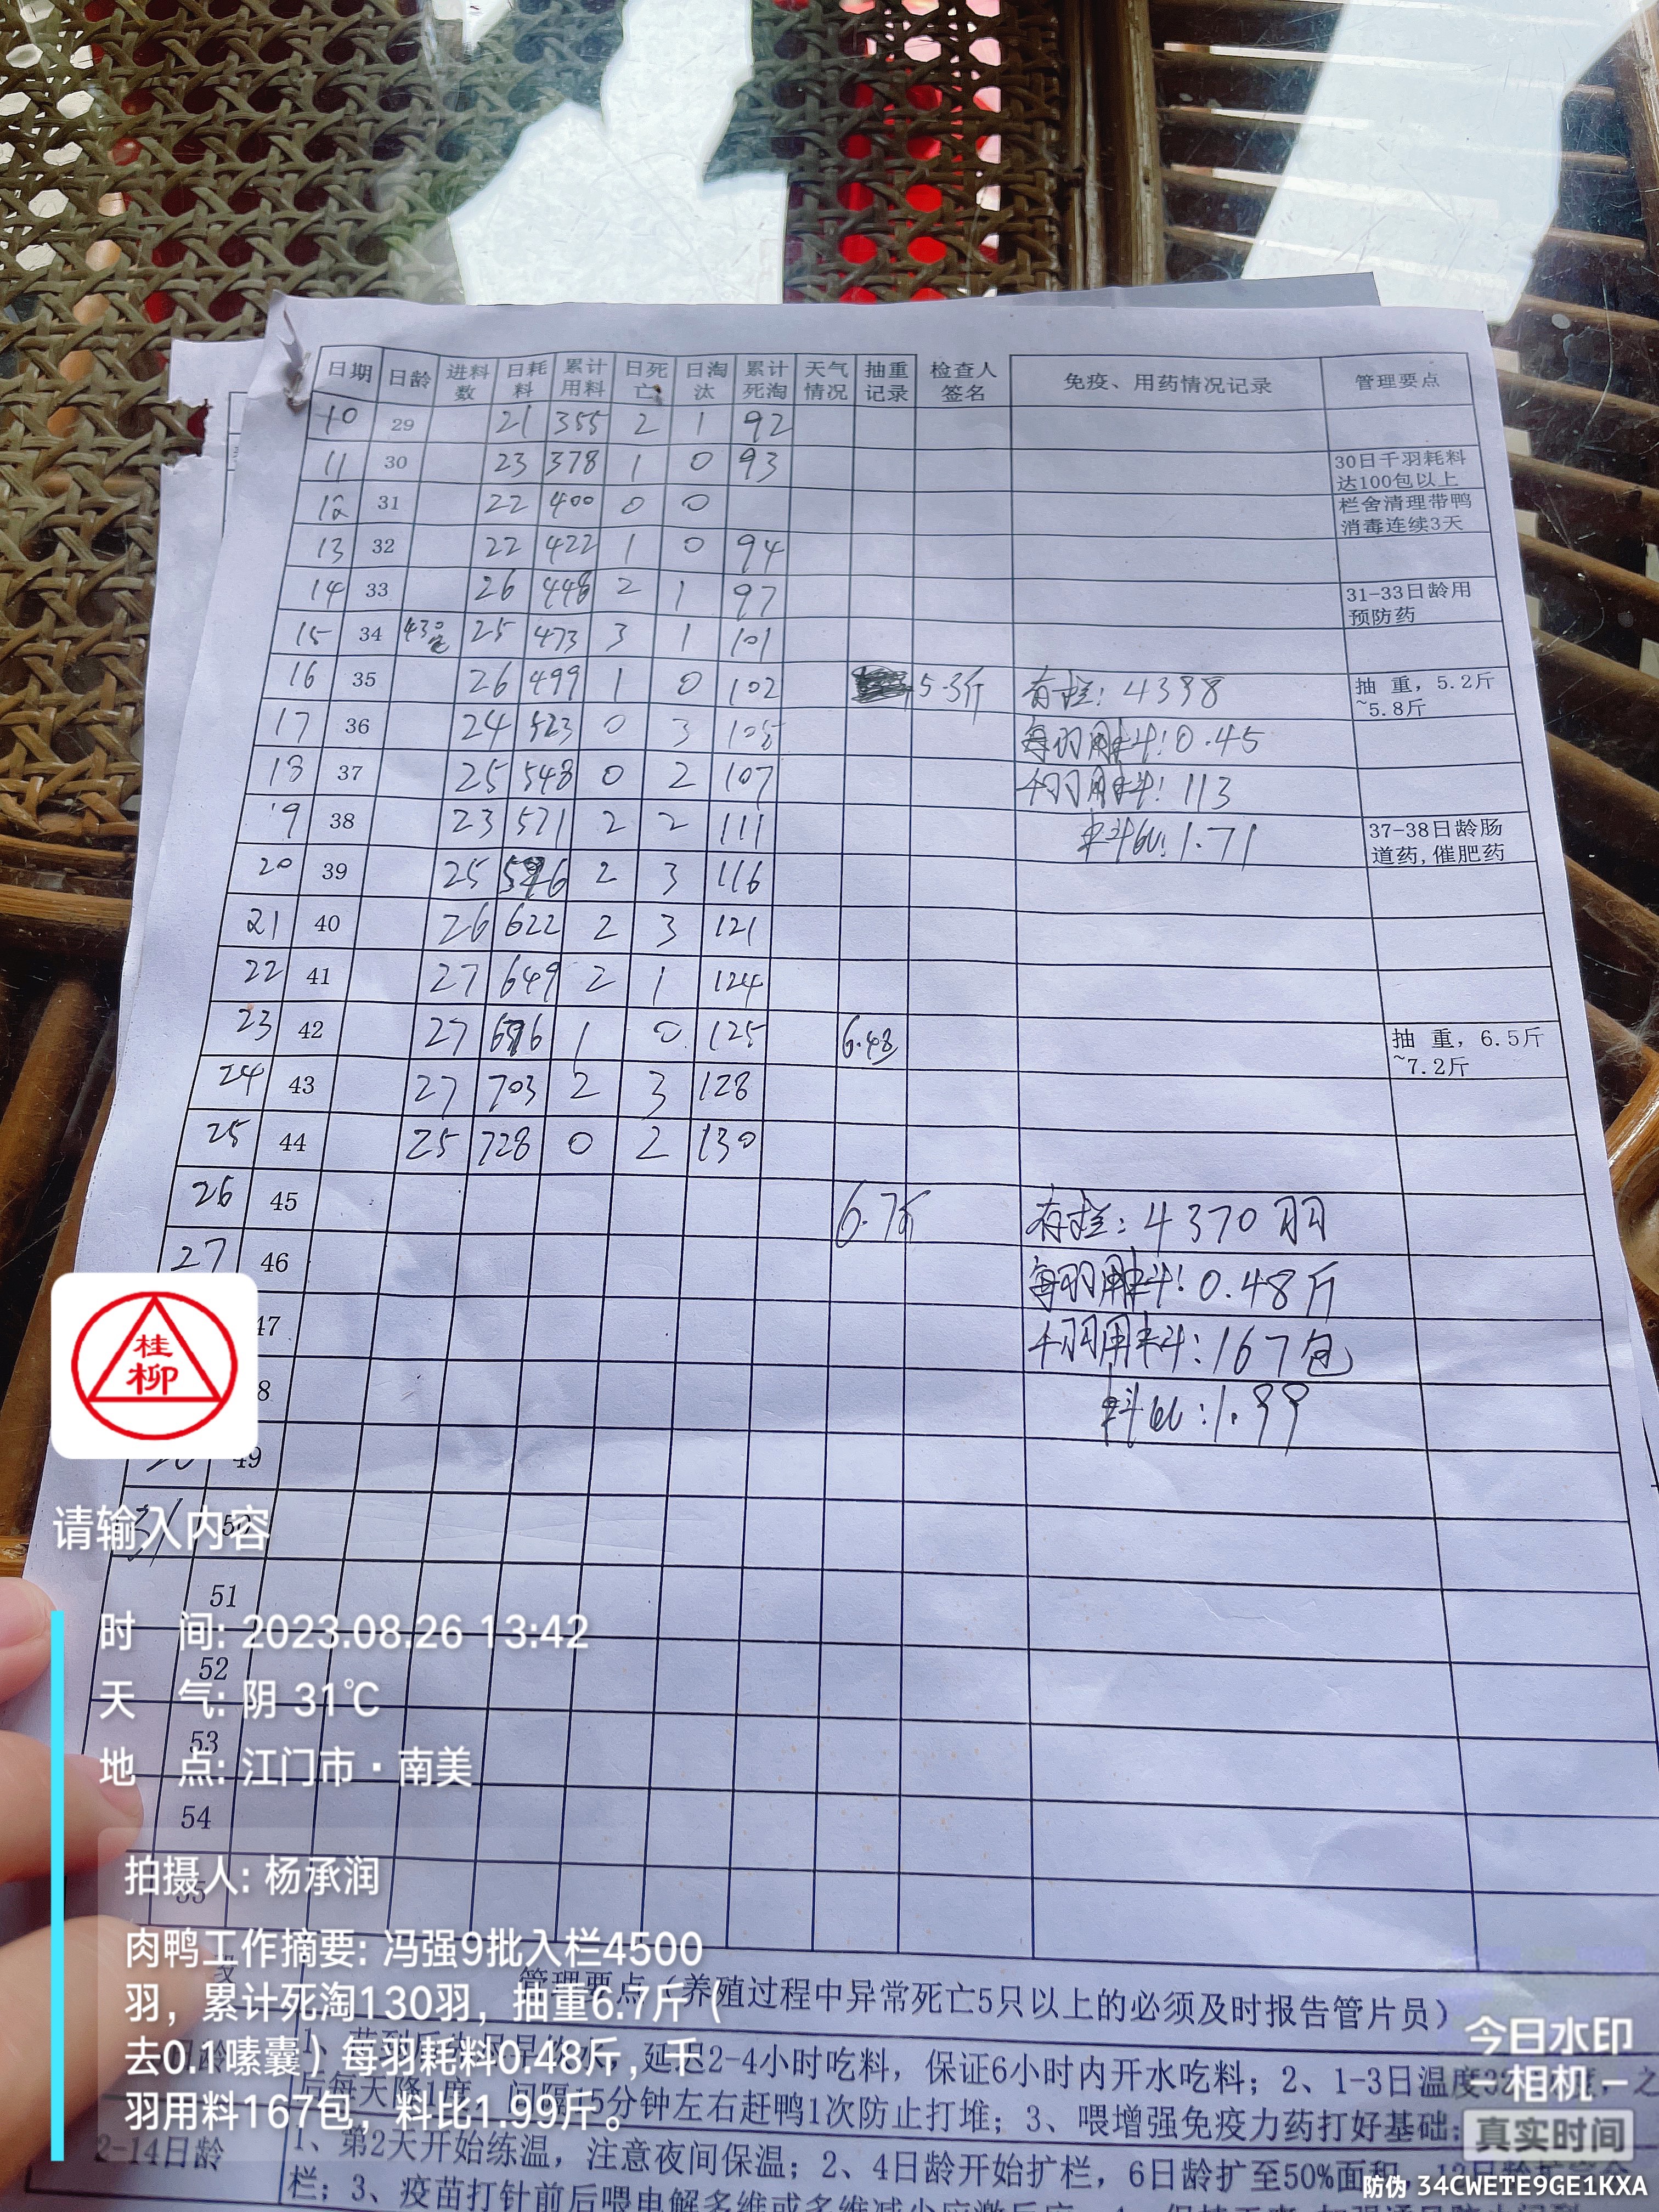 日期 日龄 进料数 日耗料 累计用料 日死亡 日淘汰 累计死淘 天气情况 抽重记录 检查人签名 免疫、用药情况记录 管理要点
10 29 21 355 2 1 92
11 30 23 378 1 0 93 30日千羽耗料达100包以上
12 31 22 400 0 0 栏舍清理带鸭消毒连续3天
13 32 22 422 1 0 94
14 33 26 448 2 1 97 31-33日龄用预防药
15 34 430包 25 473 3 1 101
16 35 26 499 1 0 102 5.3斤 存栏:4398 抽 重，5.2斤~5.8斤
17 36 24 523 0 3 105 每羽用料:0.45
18 37 25 548 0 2 107 千羽用料:113
19 38 23 571 2 2 111 料比:1.71 37-38日龄肠道药,催肥药
20 39 25 596 2 3 116
21 40 26 622 2 3 121
22 41 27 649 2 1 124
23 42 27 676 1 0 125 6.48 抽 重，6.5斤~7.2斤
24 43 27 703 2 3 128
25 44 25 728 0 2 130
26 45 6.7斤 存栏:4370羽
27 46 每羽用料:0.48斤
47 千羽用料:167包
8 料比:1.99
49
31 50
51
52
53
54
55
桂柳
请输入内容
时 间: 2023.08.26 13:42
天 气: 阴 31℃
地 点: 江门市·南美
拍摄人: 杨承润
肉鸭工作摘要: 冯强9批入栏4500
羽，累计死淘130羽，抽重6.7斤（
去0.1嗉囊）每羽耗料0.48斤，千
羽用料167包，料比1.99斤。
管理要点（养殖过程中异常死亡5只以上的必须及时报告管片员）
延迟2-4小时吃料，保证6小时内开水吃料；2、1-3日温度32
后每天降1度 间隔15分钟左右赶鸭1次防止打堆；3、喂增强免疫力药打好基础;
2-14日龄
1、第2天开始练温，注意夜间保温；2、4日龄开始扩栏，6日龄扩至50%面积
栏；3、疫苗打针前后喂电解多维或多维减少应激反应
今日水印
相机
真实时间
防伪 34CWETE9GE1KXA